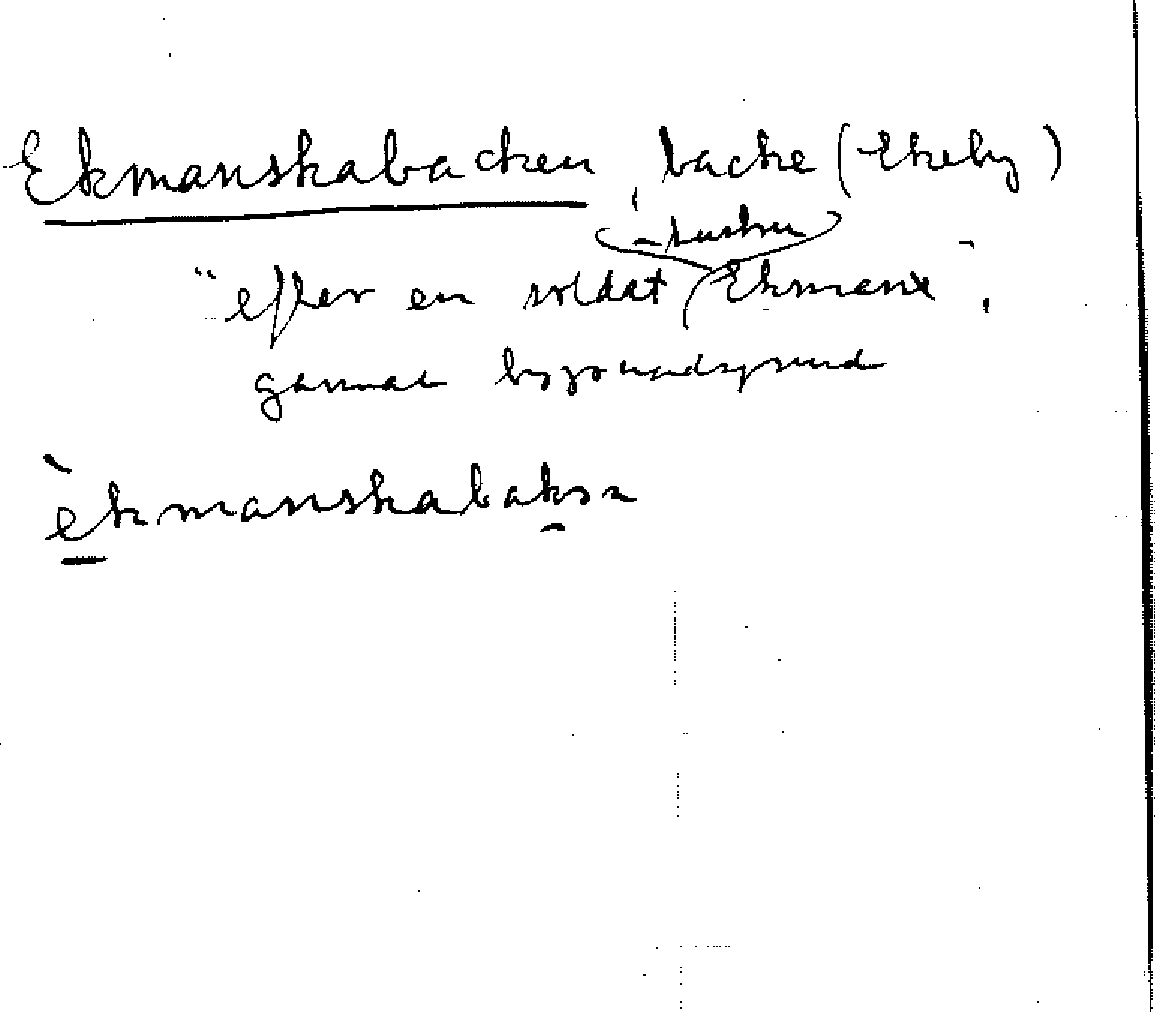 Ekmanskabacken, backe (Ekeby)
"efter en soldat Ekman",
gammal byggnadsgrund
èkmanskabakən